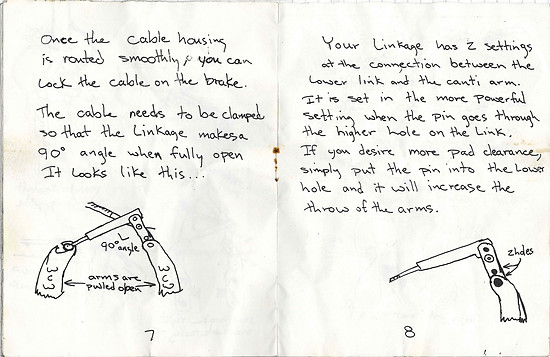 Once the cable housing
is routed smoothly, you can
Lock the cable on the brake.
The cable needs to be clamped
so that the Linkage makes a
90° angle when fully open
It looks like this...
90° angle
WCW
arms are
pulled open
WCW
7
Your Linkage has 2 settings
at the connection between the
Lower link and the canti arm.
It is set in the more powerful
setting when the pin goes through
the higher hole on the Link.
If you desire more pad clearance,
simply put the pin into the Lower
hole and it will increase the
throw of the arms.
2 holes
8